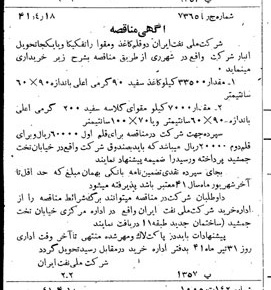 شماره ج ر ۷۳۶۵۴ ۴۱/۴/۱۸
آگهی مناقصه
شرکت ملی نفت ایران دو قلم کاغذ و مقوا را تفکیکا و یا یکجا تحویل
انبار شرکت واقع در شهر ری از طریق مناقصه بشرح زیر خریداری
مینماید
۱ ـ مقدار ۳۳۵۰۰ کیلو کاغذ سفید ۹۰ گرمی اعلی باندازه ۹۰×۶۰
سانتیمتر
۲ ـ مقدار ۷۰۰۰ کیلو مقوای گلاسه سفید ۲۰۰ گرمی اعلی
باندازه ۹۰×۶۰ سانتیمتر و یا ۷۰×۱۰۰ سانتیمتر
سپرده جهت شرکت در مناقصه برای قلم اول ۶۰۰۰۰ ریال و برای
قلم دوم ۲۰۰۰۰ ریال میباشد که باید بصندوق شرکت واقع در خیابان تخت
جمشید پرداخته و رسید را ضمیمه پیشنهاد نمایند
بجای سپرده نقدی تضمین نامه بانکی بهمان مبلغ که حد اقل تا
آخر شهریور ماه سال ۴۱ معتبر باشد پذیرفته میشود
داوطلبان شرکت در مناقصه میتوانند برگ شرائط مناقصه را از
اداره خرید شرکت ملی نفت ایران واقع در اداره مرکزی خیابان تخت
جمشید (ساختمان جدید طبقه ۱۱) دریافت نمایند
پیشنهادات باید در پاکت لاک و مهر شده منتهی تا آخر وقت اداری
روز ۳۱ تیر ماه ۴۱ بدفتر اداره خرید در مقابل رسید تحویل گردد
شرکت ملی نفت ایران
پ ۱۳۵۷ ۲ـ۲